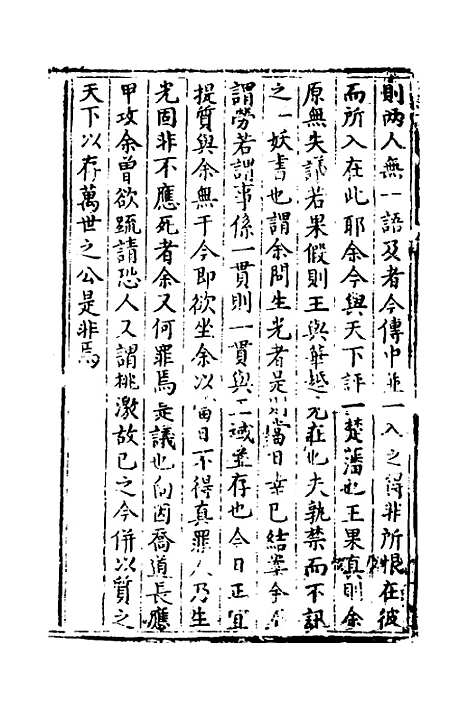 則两人無一語及者今傳中並一入之得非所恨在彼
而所入在此耶余今與天下評一楚藩也王果真則余
原無失議若果假則王與華越先在也夫孰禁而不訊
之一妖書也謂余問生光者是則當日幸已結案今
謂勞若謂事係一貫則一貫與二域並存也今日正宜
提質與余無干今即欲坐余以當日不得真罪人乃生
光固非不應死者余又何罪焉是議也向因喬道長應
甲攻余曾欲疏請恐人又謂挑激故已之今併以質之
天下以存萬世之公是非焉